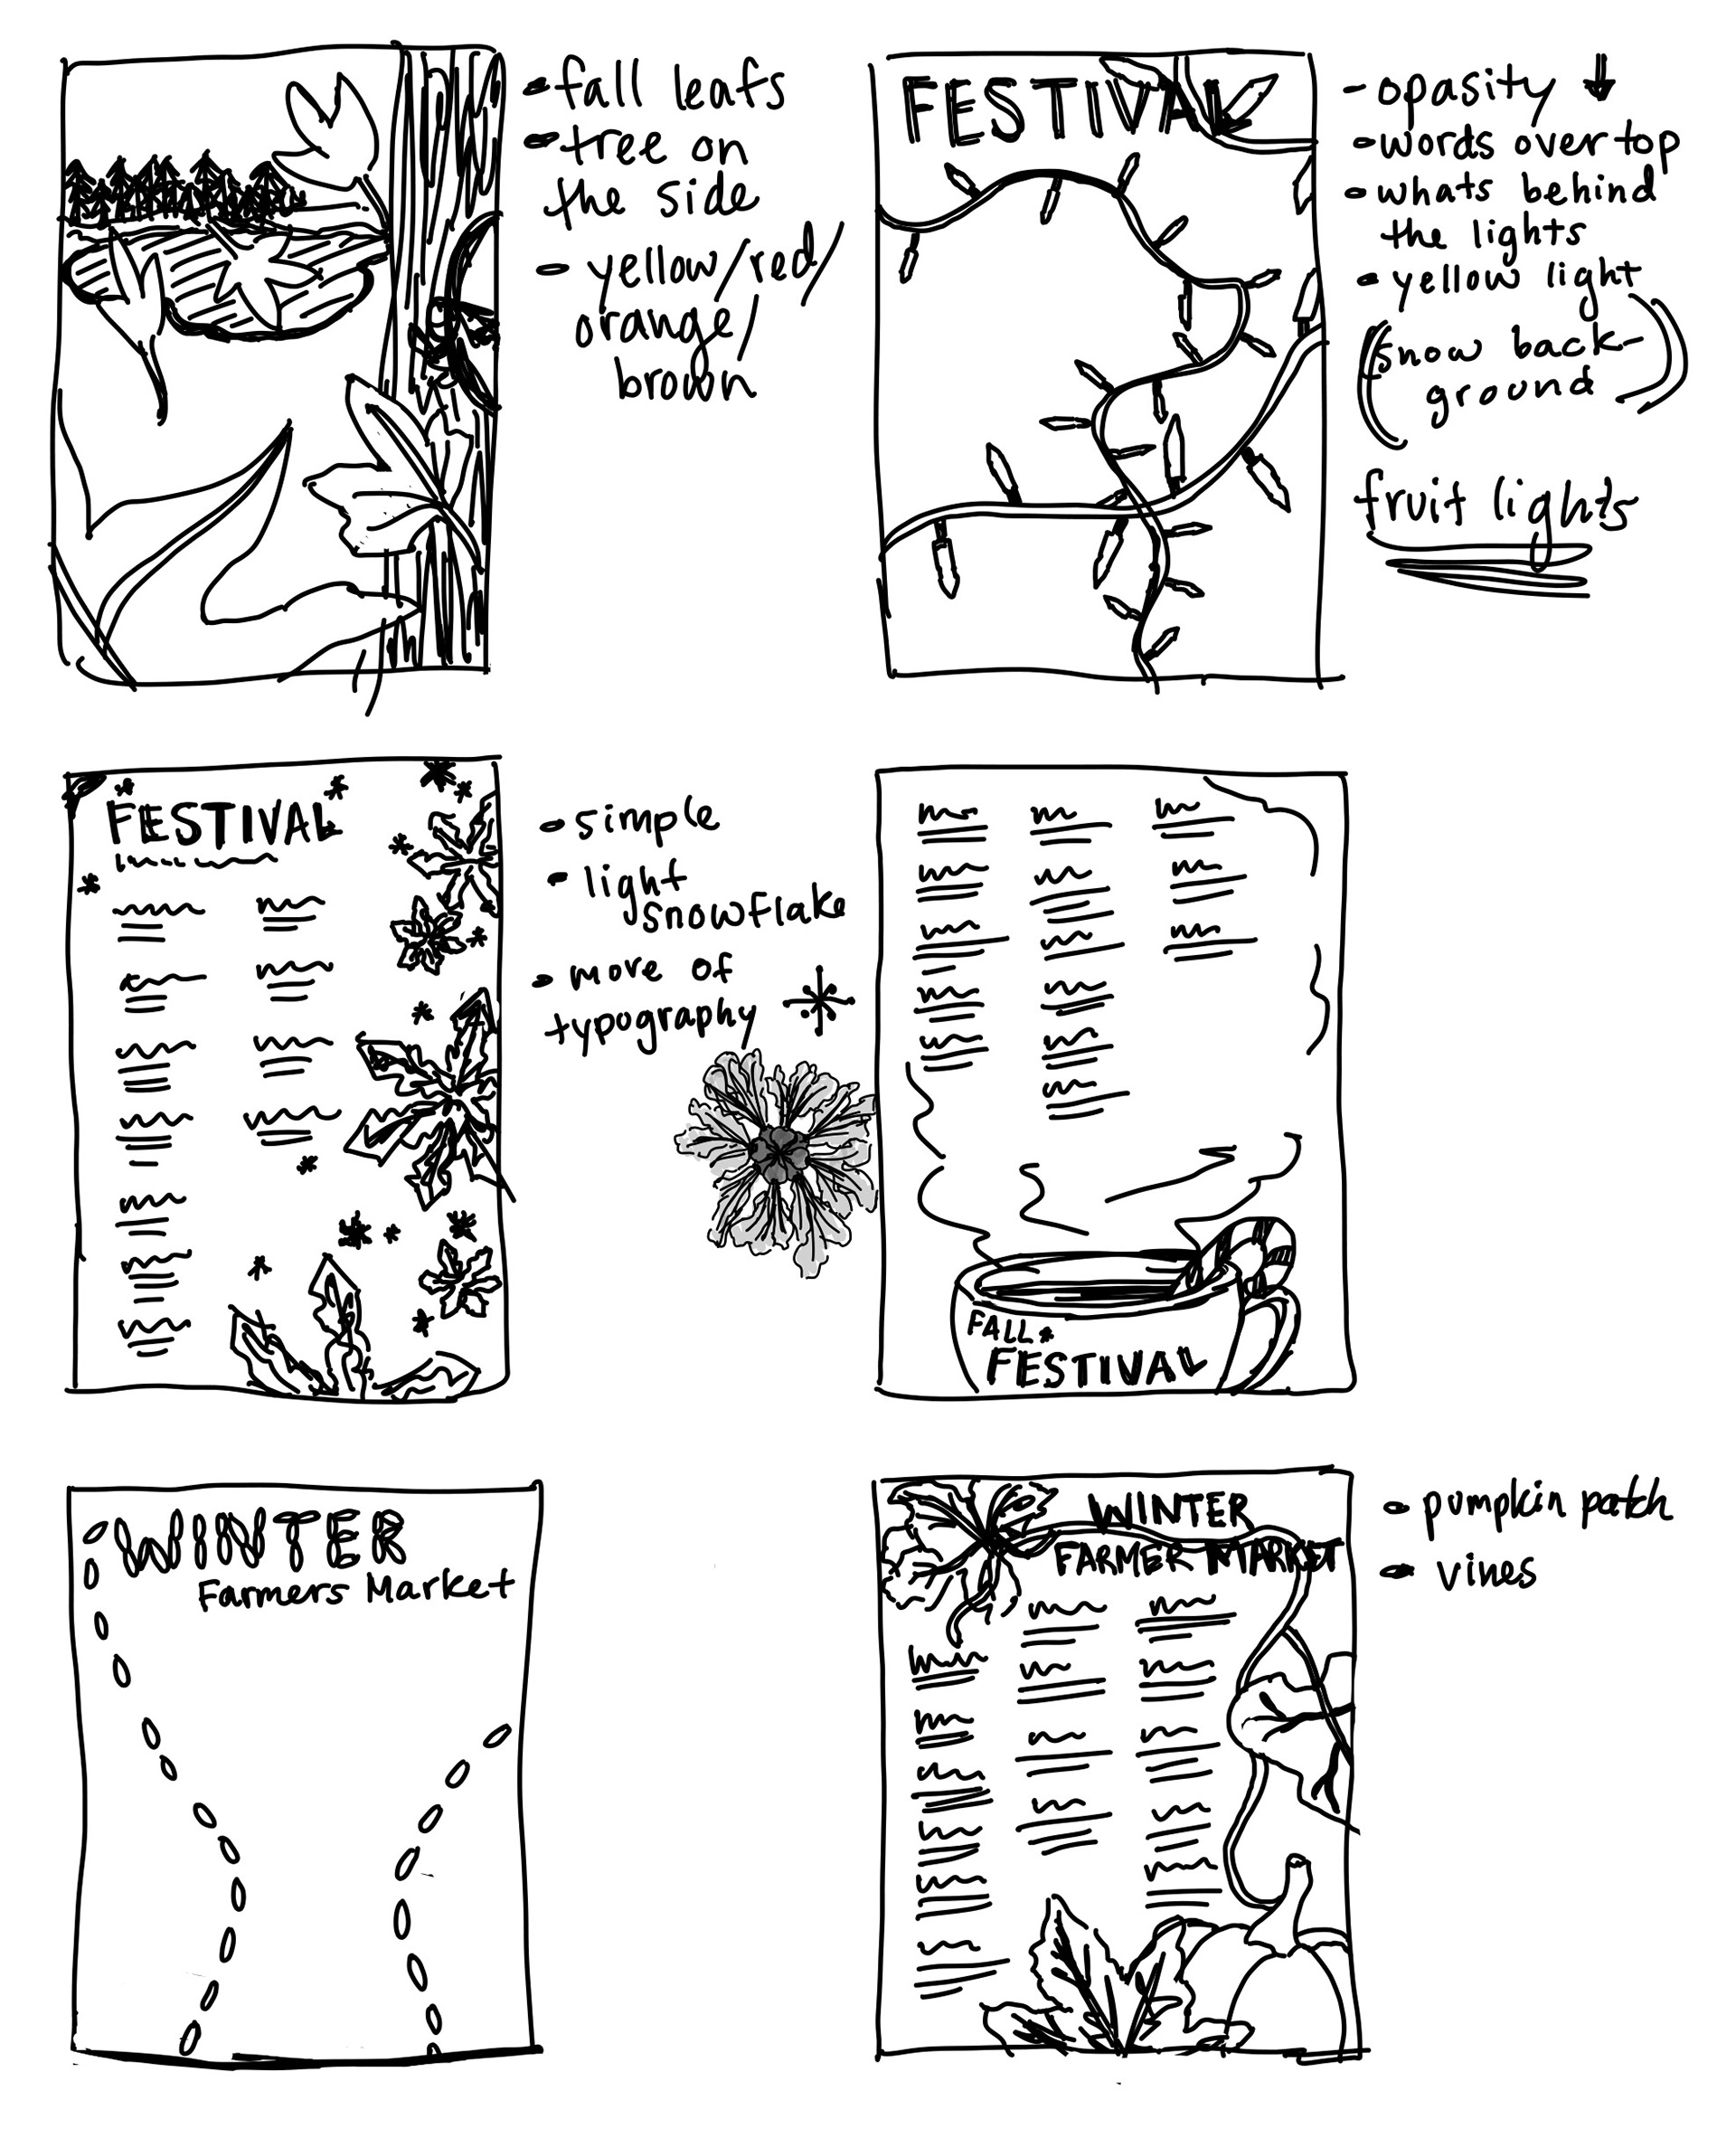 - fall leafs
- tree on
the side
- yellow/red/
orange/
brown
FESTIVAL
- opasity ↓
- words over top
- whats behind
the lights
- yellow light
(snow back-
ground)
fruit lights
FESTIVAL
- simple
- light
snowflake
- more of
typography
FALL
FESTIVAL
WINTER
Farmers Market
WINTER
FARMER MARKET
- pumpkin patch
- vines